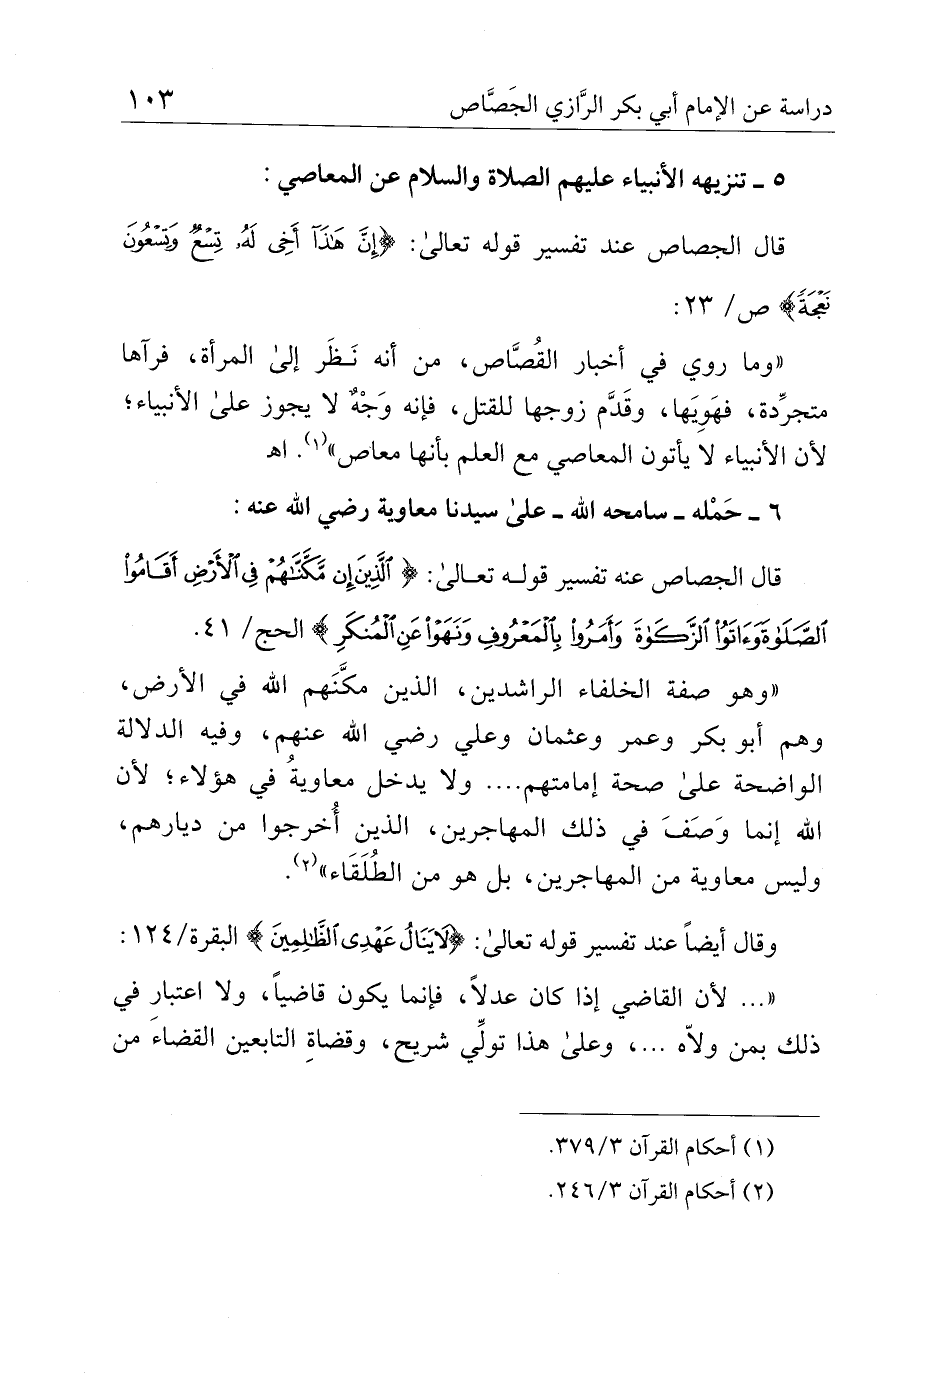 دراسة عن الإمام أبي بكر الرَّازي الجَصَّاص ١٠٣
٥ ـ تنزيهه الأنبياء عليهم الصلاة والسلام عن المعاصي :
قال الجصاص عند تفسير قوله تعالىٰ: ﴿إِنَّ هَٰذَآ أَخِى لَهُۥ تِسْعٌ وَتِسْعُونَ
نَعْجَةً﴾ ص/ ٢٣:
«وما روي في أخبار القُصَّاص، من أنه نَـظَر إلىٰ المرأة، فرآها
متجرِّدة، فهَوِيَها، وقَدَّم زوجها للقتل، فإنه وَجْهٌ لا يجوز علىٰ الأنبياء؛
لأن الأنبياء لا يأتون المعاصي مع العلم بأنها معاص»(١). اهـ
٦ ـ حَمْله ـ سامحه الله ـ علىٰ سيدنا معاوية رضي الله عنه :
قال الجصاص عنه تفسير قولـه تعـالىٰ: ﴿ ٱلَّذِينَ إِن مَّكَّنَّٰهُمْ فِى ٱلْأَرْضِ أَقَامُوا۟
ٱلصَّلَوٰةَ وَءَاتَوُا۟ ٱلزَّكَوٰةَ وَأَمَرُوا۟ بِٱلْمَعْرُوفِ وَنَهَوْا۟ عَنِ ٱلْمُنكَرِ ﴾ الحج/ ٤١.
«وهو صفة الخلفاء الراشدين، الذين مكَّنَهم الله في الأرض،
وهم أبو بكر وعمر وعثمان وعلي رضي الله عنهم، وفيه الدلالة
الواضحة علىٰ صحة إمامتهم.... ولا يدخل معاويةُ في هؤلاء؛ لأن
الله إنما وَصَفَ في ذلك المهاجرين، الذين أُخرجوا من ديارهم،
وليس معاوية من المهاجرين، بل هو من الطُلَقَاء»(٢).
وقال أيضاً عند تفسير قوله تعالىٰ: ﴿لَا يَنَالُ عَهْدِى ٱلظَّٰلِمِينَ ﴾ البقرة/١٢٤:
«... لأن القاضي إذا كان عدلاً، فإنما يكون قاضياً، ولا اعتبار في
ذلك بمن ولاّه ...، وعلىٰ هذا تولِّي شريح، وقضاةِ التابعين القضاءَ من
(١) أحكام القرآن ٣٧٩/٣.
(٢) أحكام القرآن ٢٤٦/٣.